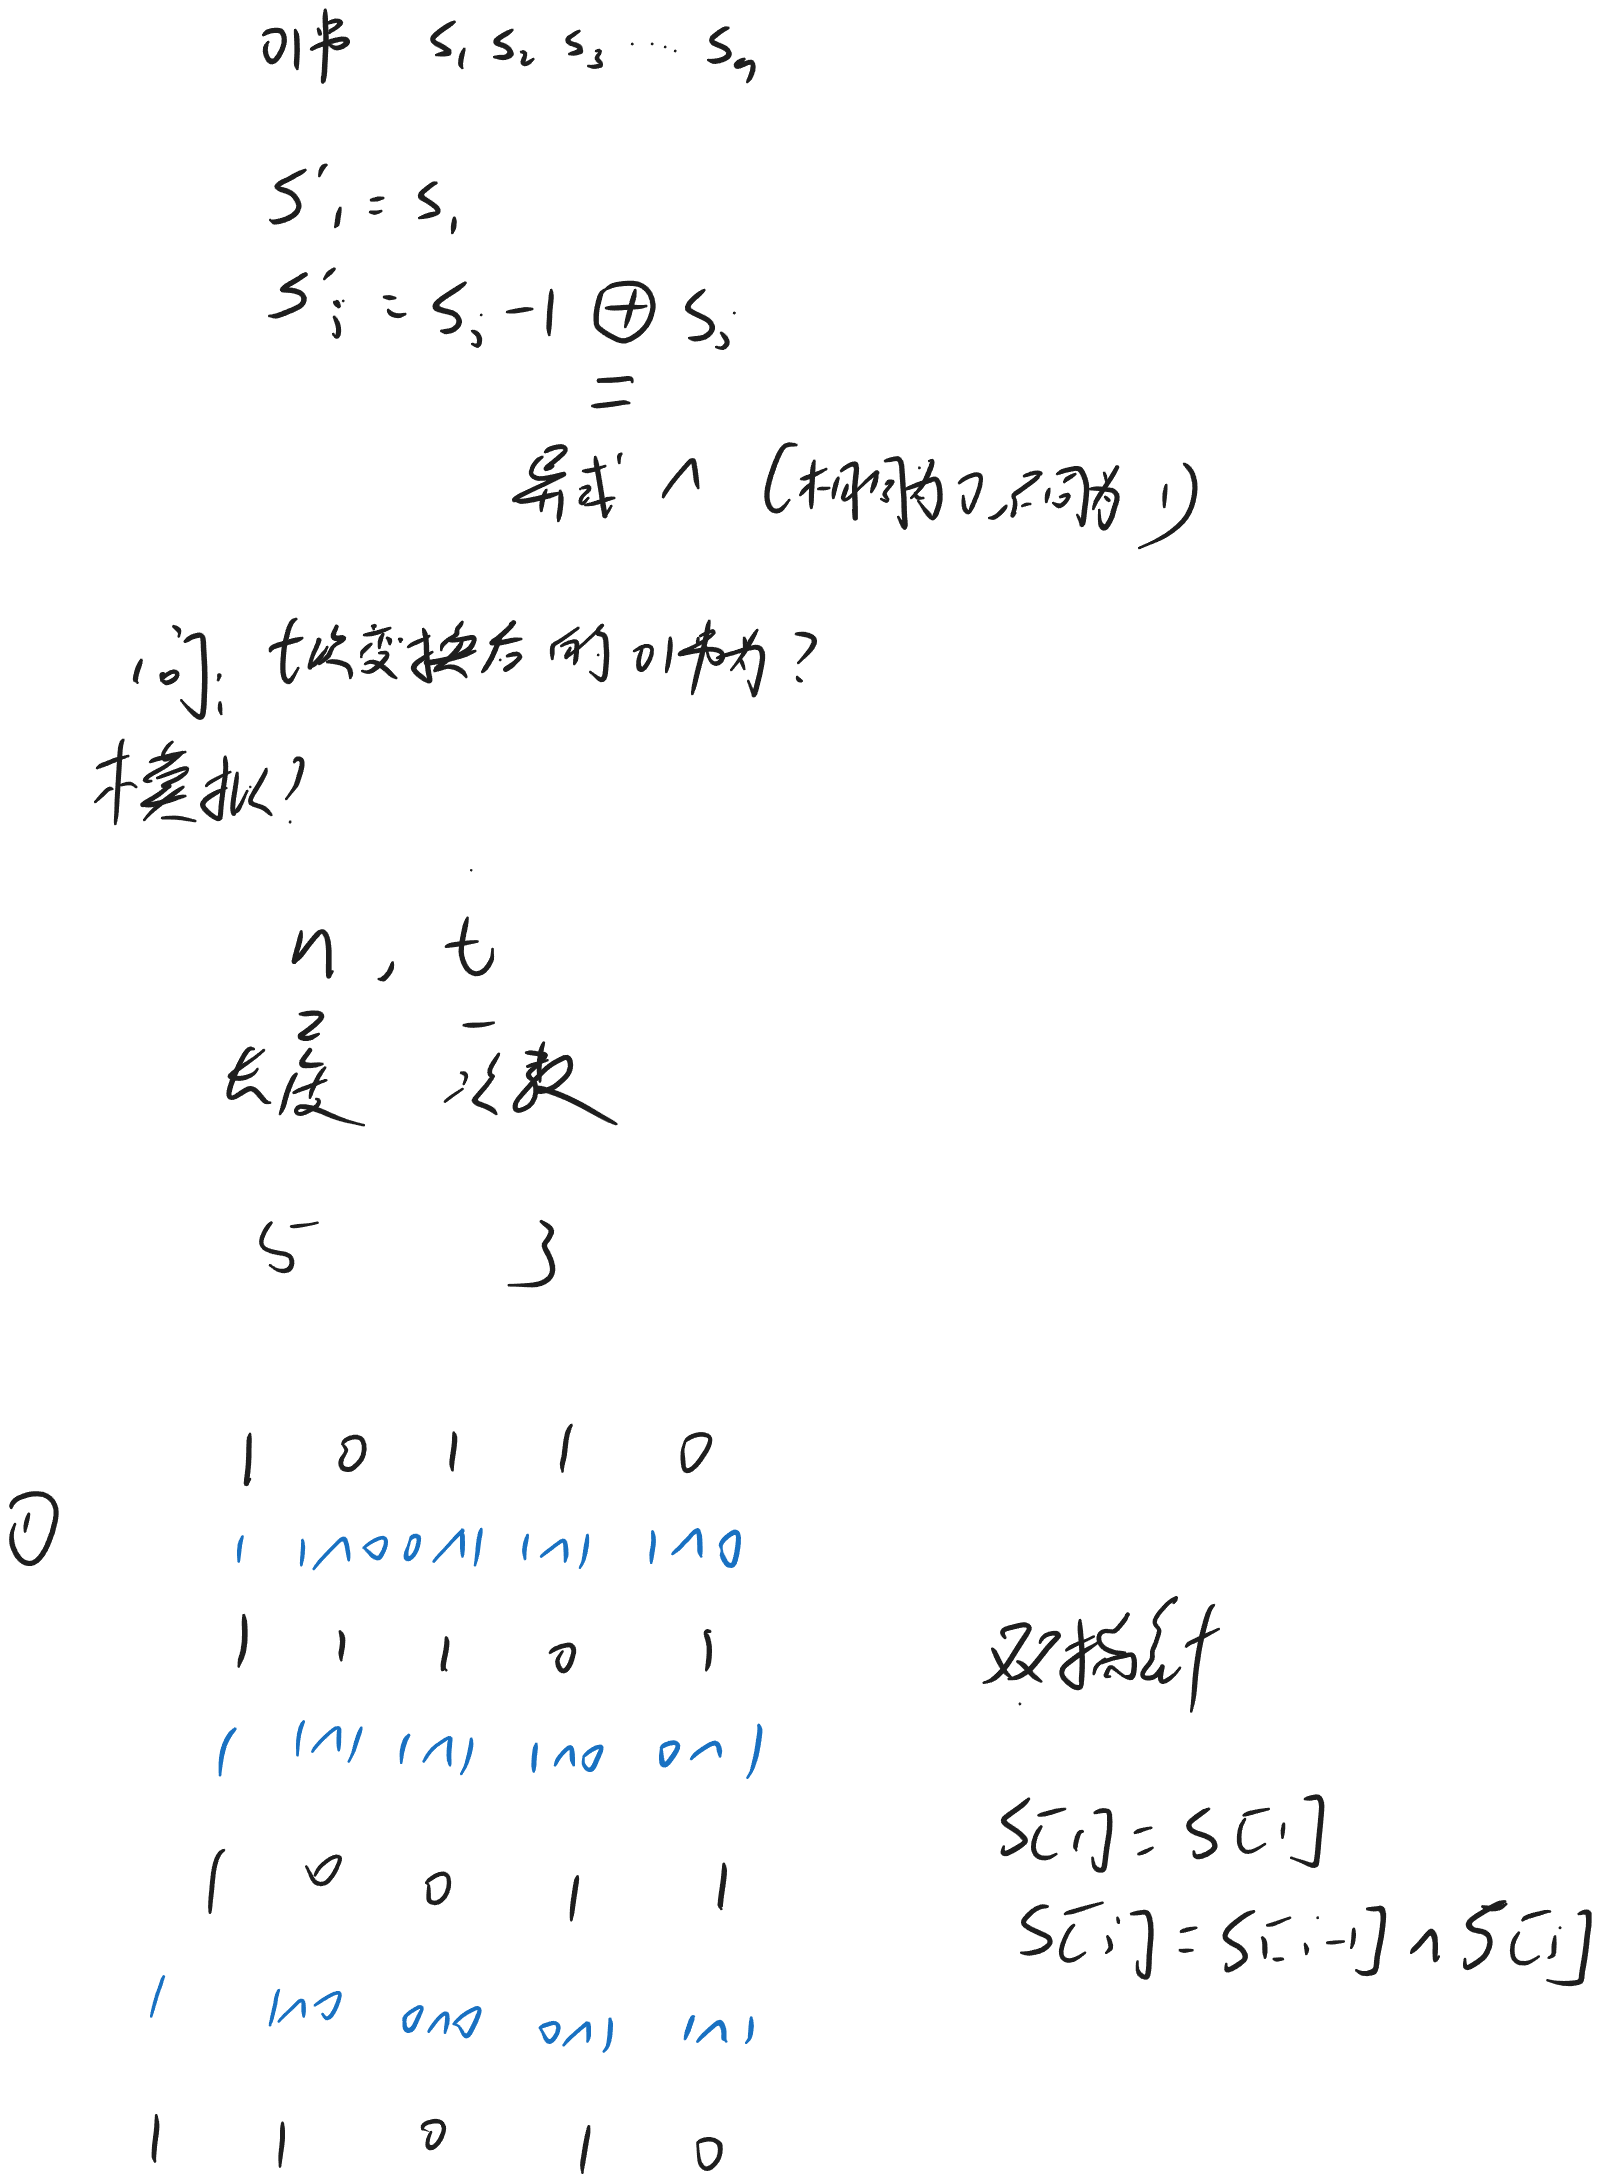 01串 s₁ s₂ s₃ ···· sₙ
s'₁ = s₁
s'ᵢ = sᵢ-1 ⊕ sᵢ
=
异或 ^ (相同为0,不同为1)
问: t次变换后的01串为?
模拟?
n , t
长度 次数
5 3
1 0 1 1 0
① 1 1^0 0^1 1^1 1^0
1 1 1 0 1
双指针
1 1^1 1^1 1^0 0^1
s[1] = s[1]
1 0 0 1 1
s[i] = s[i-1] ^ s[i]
1 1^0 0^0 0^1 1^1
1 1 0 1 0